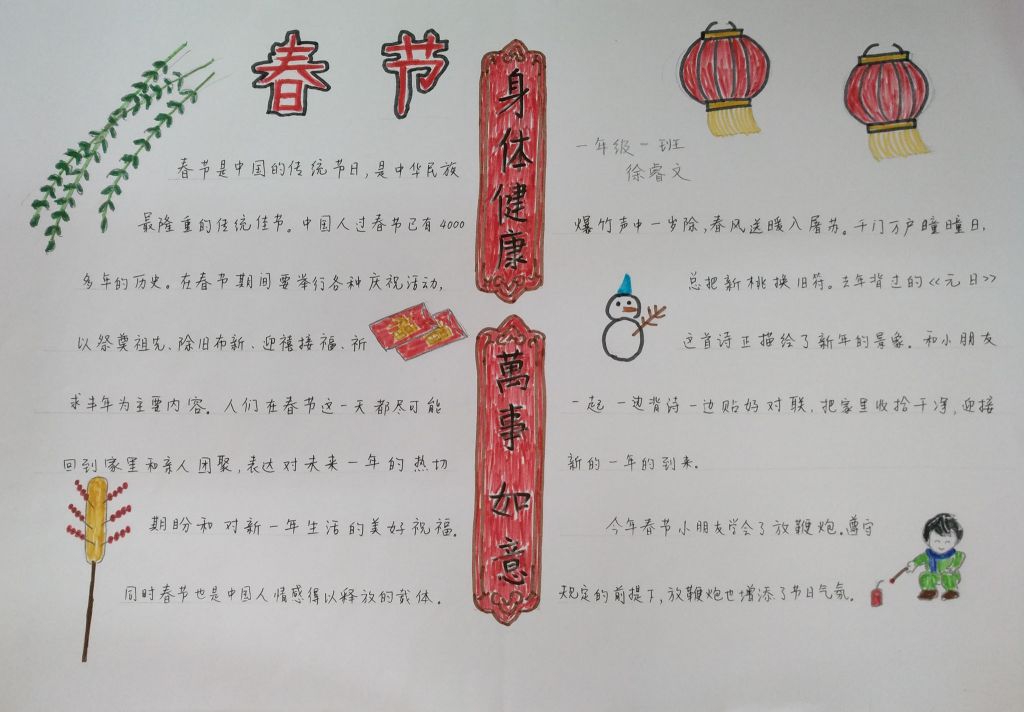 春节
春节是中国的传统节日,是中华民族
最隆重的传统佳节。中国人过春节已有4000
多年的历史。在春节期间要举行各种庆祝活动,
以祭奠祖先、除旧布新、迎禧接福、祈
求丰年为主要内容。人们在春节这一天都尽可能
回到家里和亲人团聚,表达对未来一年的热切
期盼和对新一年生活的美好祝福。
同时春节也是中国人情感得以释放的载体。
身体健康
萬事如意
一年级一班
徐睿文
爆竹声中一岁除,春风送暖入屠苏。千门万户曈曈日,
总把新桃换旧符。去年背过的《元日》
这首诗正描绘了新年的景象。和小朋友
一起一边背诗一边贴好对联,把家里收拾干净,迎接
新的一年的到来。
今年春节小朋友学会了放鞭炮。遵守
规定的前提下,放鞭炮也增添了节日气氛。